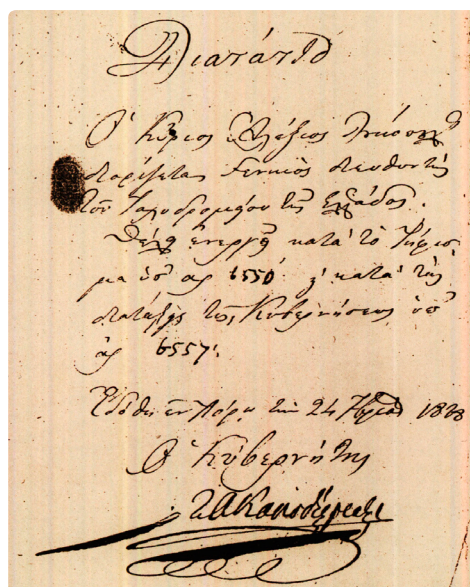 Διάταγμα
Ὁ Κύριος Ἀλέξιος
διορίζεται Γενικὸς διευθυντὴς
τοῦ Ταχυδρομείου τῆς Ἑλλάδος.
Θέλει ἐνεργῇ κατὰ τὸ Ψήφισ
μα ὑπ ἀρ 6550 κατὰ τὰς
διατάξεις τῆς Κυβερνήσεως ὑπ
ἀρ 6557.
Ἐδόθη ἐν Πόρῳ τὴν 24 1828
Ὁ Κυβερνήτης
Ι Α Καποδίστριας